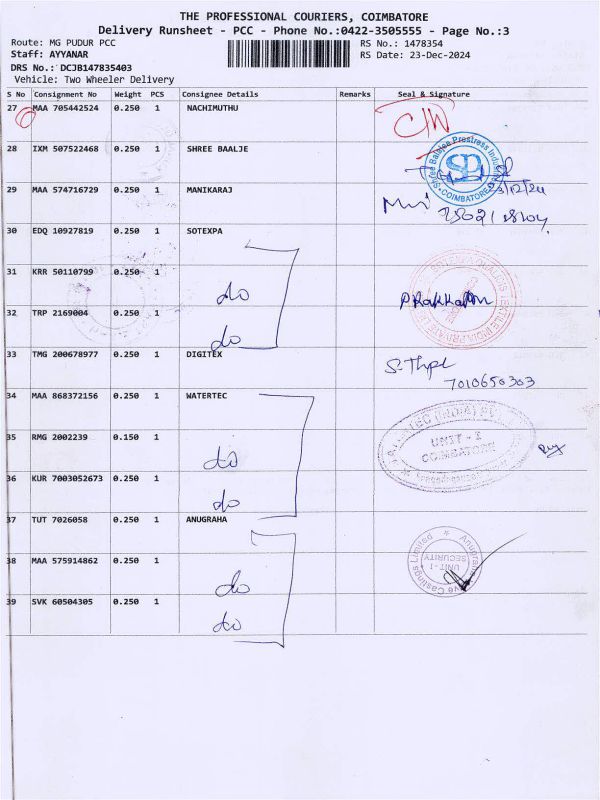 THE PROFESSIONAL COURIERS, COIMBATORE
Delivery Runsheet - PCC - Phone No.:0422-3505555 - Page No.:3
Route: MG PUDUR PCC RS No.: 1478354
Staff: AYYANAR RS Date: 23-Dec-2024
DRS No.: DCJB147835403
Vehicle: Two Wheeler Delivery
S No Consignment No Weight PCS Consignee Details Remarks Seal & Signature
27 MAA 705442524 0.250 1 NACHIMUTHU
28 IXM 507522468 0.250 1 SHREE BAALJE
Shree Balajee Prestress COIMBATORE
29 MAA 574716729 0.250 1 MANIKARAJ
30 EDQ 10927819 0.250 1 SOTEXPA
31 KRR 50110799 0.250 1 do
32 TRP 2169004 0.250 1 do
33 TMG 200678977 0.250 1 DIGITEX
7010650303
34 MAA 868372156 0.250 1 WATERTEC
UNIT - I
COIMBATORE
35 RMG 2002239 0.150 1 do
36 KUR 7003052673 0.250 1 do
37 TUT 7026058 0.250 1 ANUGRAHA
UNIT-I
SECURITY
38 MAA 575914862 0.250 1 do
39 SVK 60504305 0.250 1 do